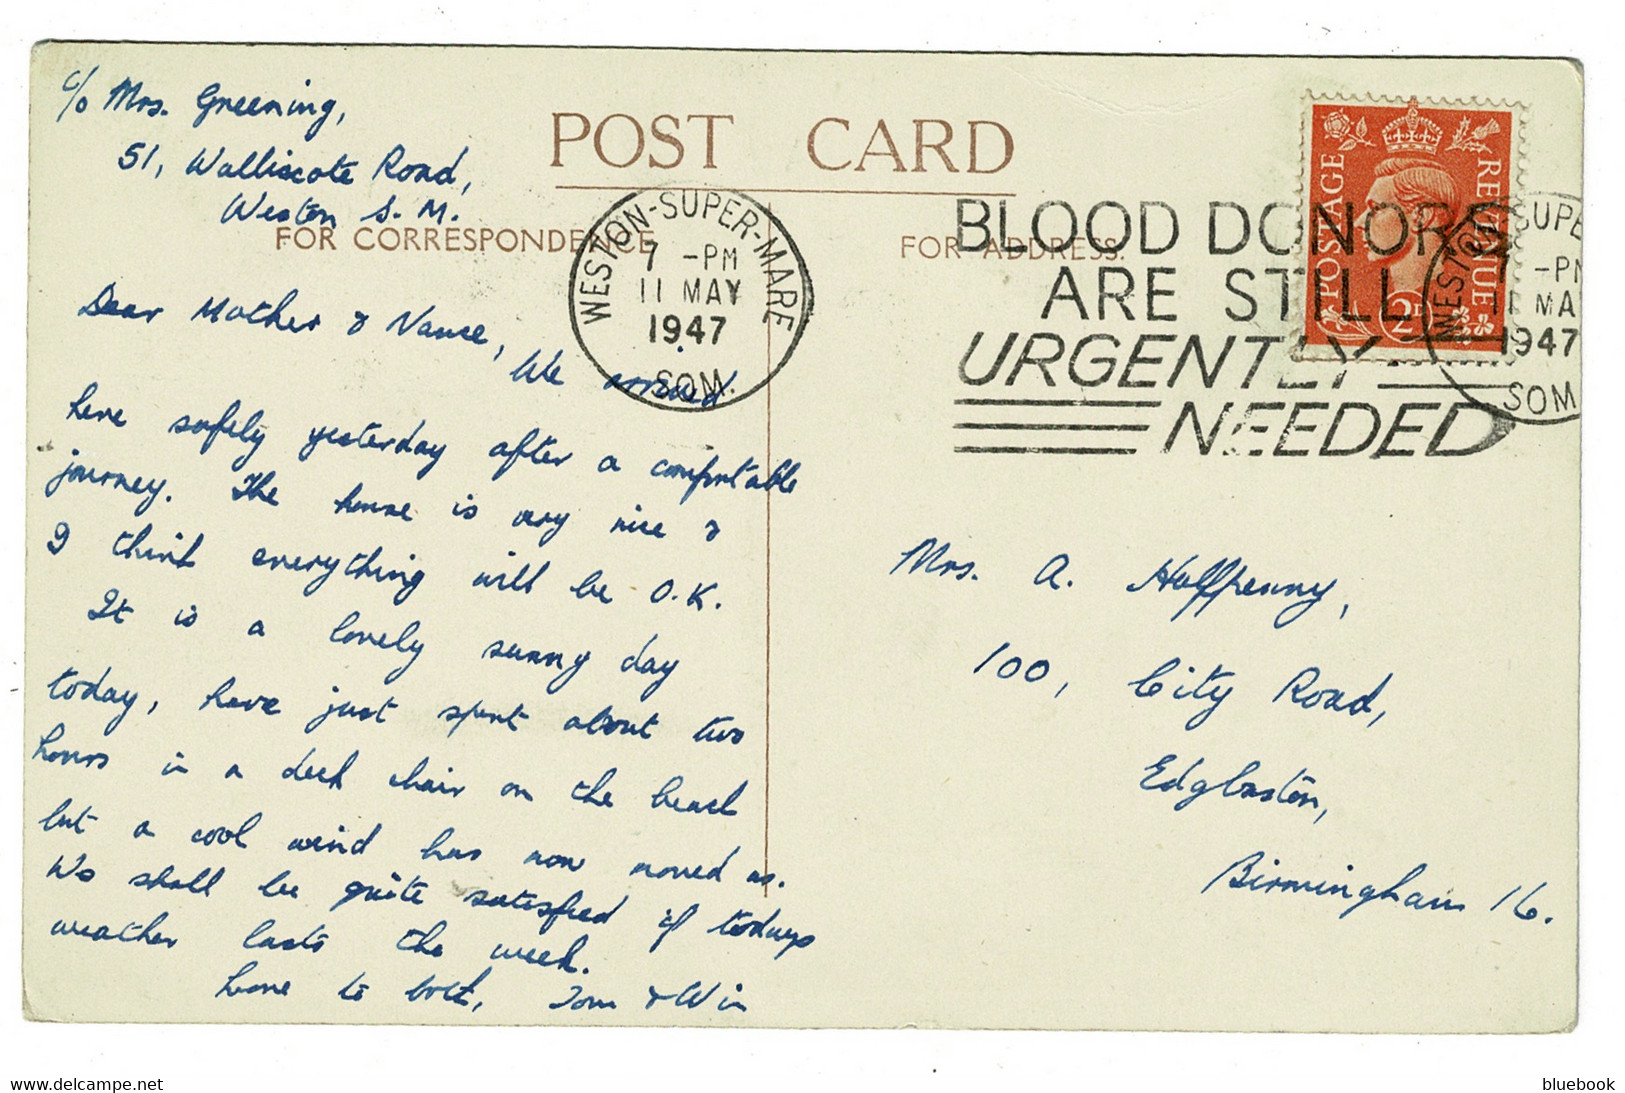 c/o Mrs. Greening,
51, Walliscote Road,
Weston S. M.
POST CARD
FOR CORRESPONDENCE
FOR ADDRESS.
WESTON-SUPER-MARE
7 -PM
11 MAY
1947
SOM.
BLOOD DONORS
ARE STILL
URGENTLY
NEEDED
POSTAGE
REVENUE
2D
WESTON-SUPE
7 -PM
11 MA
1947
SOM
Dear Mother &
We arrived
here safely yesterday after a comfortable
journey. The house is very nice &
I think everything will be O.K.
It is a lovely sunny day
today, have just spent about two
hours in a deck chair on the beach
but a cool wind has now moved us.
We shall be quite satisfied if todays
weather lasts the week.
Love to both, Tom & Win
Mrs. A. Halfpenny,
100, City Road,
Edgbaston,
Birmingham 16.
delcampe.net
bluebook